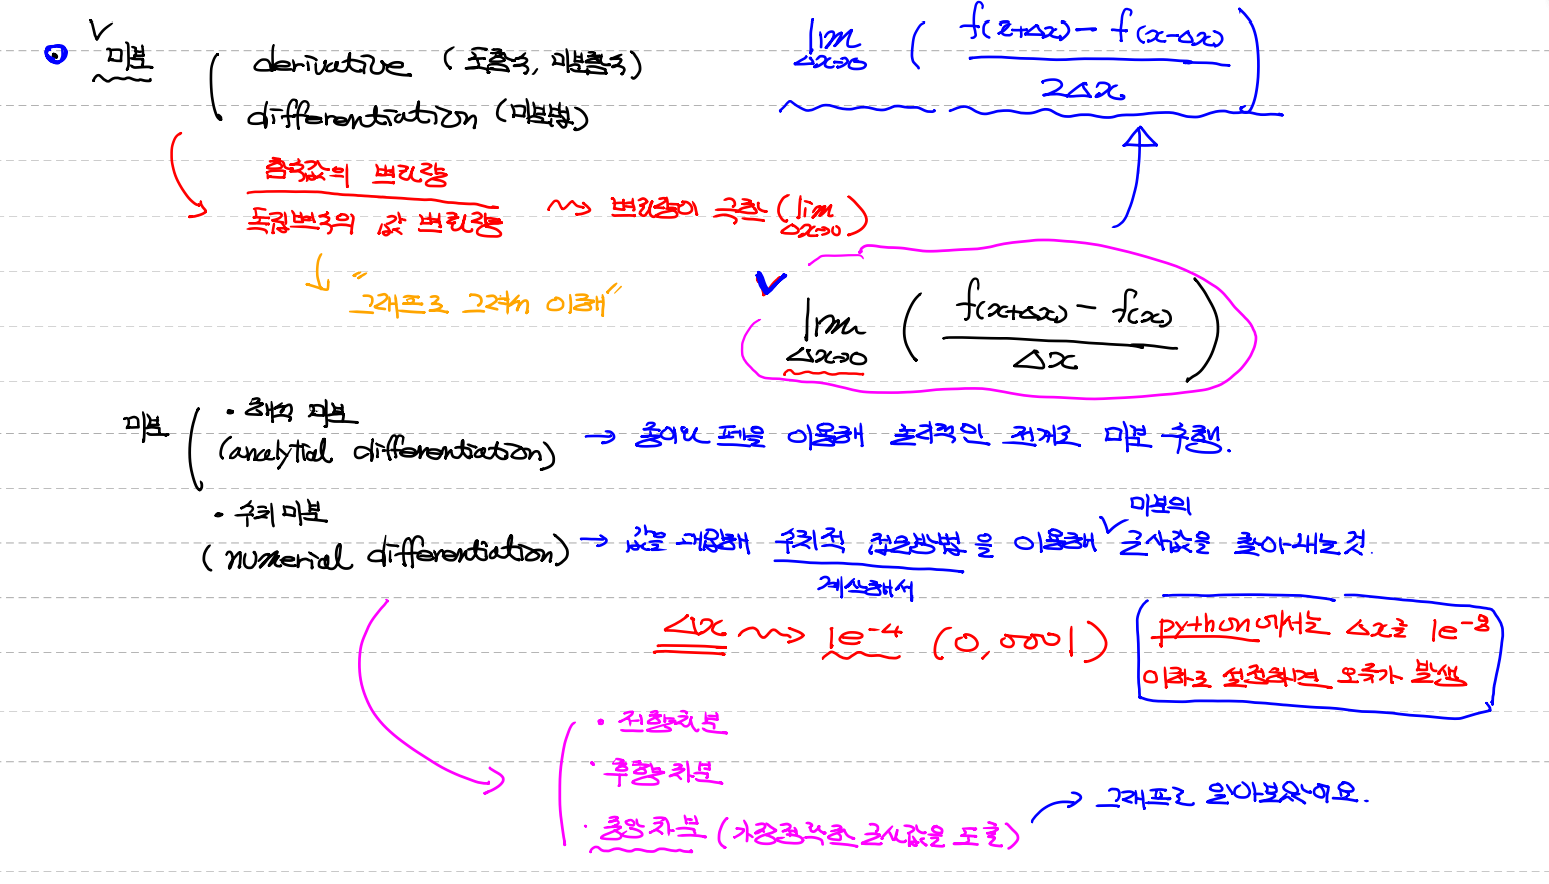 미분
derivative (도함수, 미분함수)
differentiation (미분법)
lim Δx→0 ( f(x+Δx) - f(x-Δx) / 2Δx )
함수값의 변화량
독립변수의 값 변화량
변화량이 극한 (lim Δx→0)
"그래프로 그려서 이해"
lim Δx→0 ( f(x+Δx) - f(x) / Δx )
미분
· 해석 미분
(analytial differentiation) → 종이와 펜을 이용해 논리적인 전개로 미분 수행.
· 수치미분
(numerial differentiation) → 값을 대입해 수치적 접근방법을 이용해 미분의 근사값을 찾아내는 것.
계산해서
Δx 1e-4 (0,0001)
python에서는 Δx를 1e-8
이하로 설정하면 오류가 발생
· 전향차분
· 후향차분
· 중앙차분 (가장정확한 근사값을 도출)
→ 그래프로 알아보았어요.